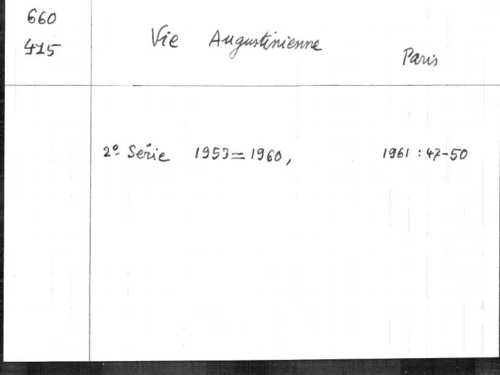 660
415
Vie Augustinienne
Paris
2e Série 1953=1960, 1961 : 47-50